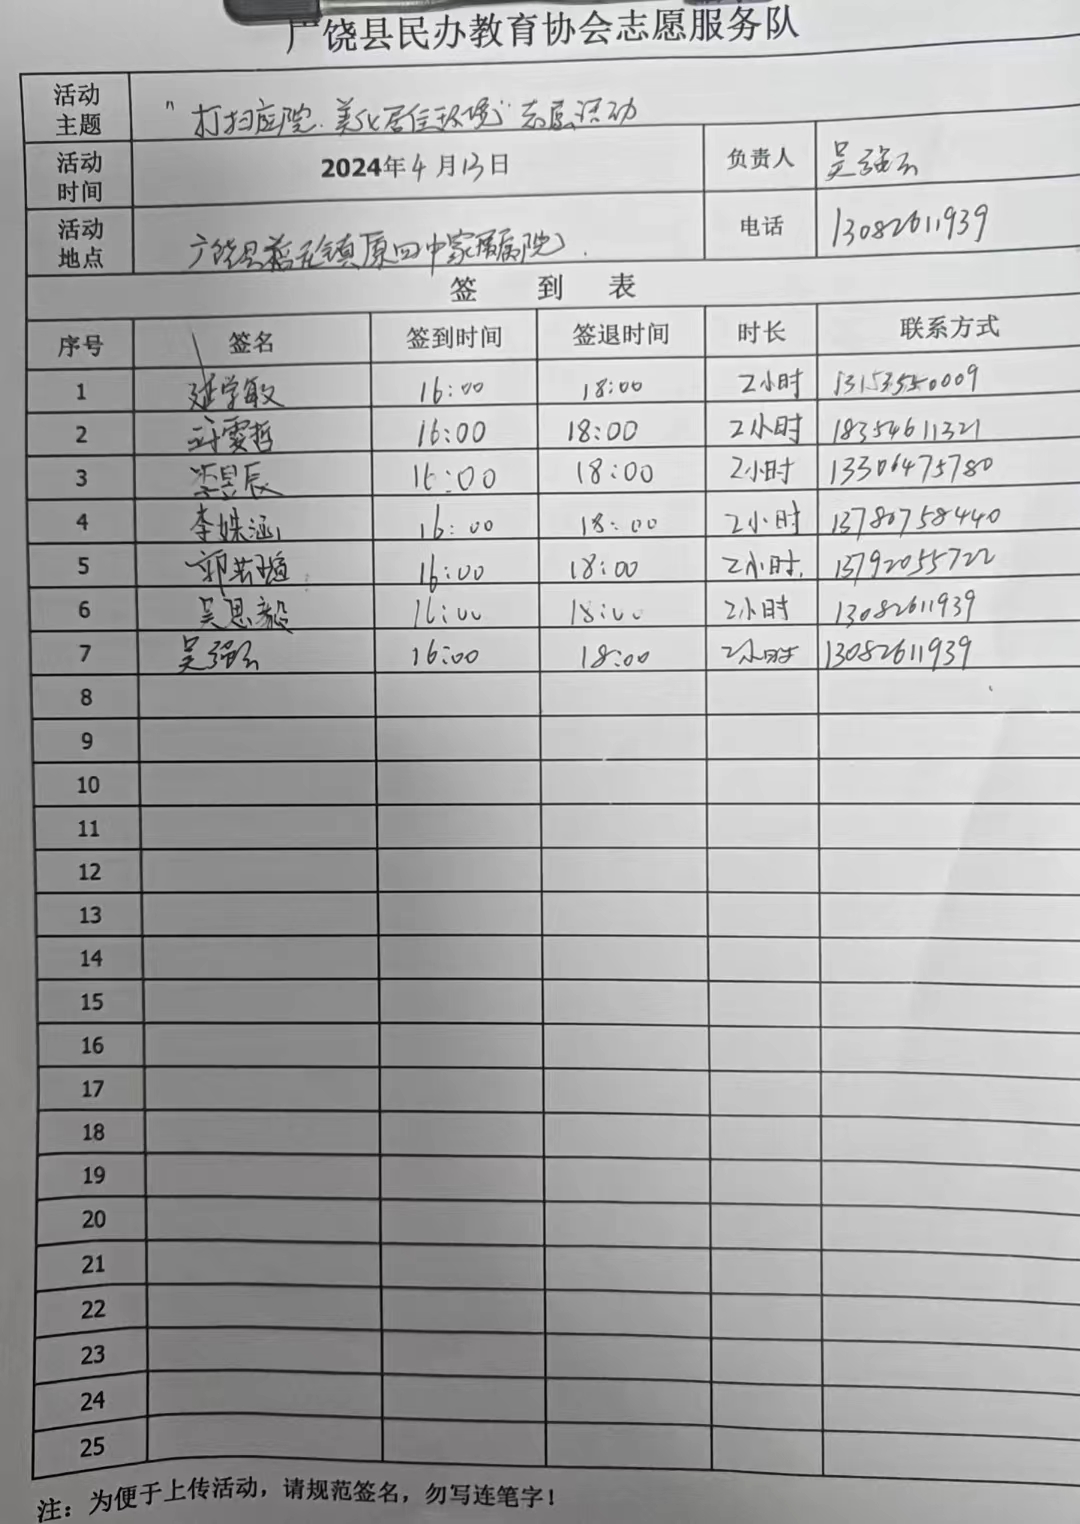 广饶县民办教育协会志愿服务队
活动主题 "打扫庭院.美化居住环境"志愿活动
活动时间 2024年4月13日 负责人 吴强云
活动地点 广饶县稻庄镇原四中家属院 电话 13082611939
签 到 表
序号 签名 签到时间 签退时间 时长 联系方式
1 延学敏 16:00 18:00 2小时 13153550009
2 雯哲 16:00 18:00 2小时 18354611321
3 昱辰 16:00 18:00 2小时 13306475780
4 李姝涵 16:00 18:00 2小时 13780758440
5 郭芸瑄 16:00 18:00 2小时. 13792055722
6 吴思毅 16:00 18:00 2小时 13082611939
7 吴强云 16:00 18:00 2小时 13082611939
8
9
10
11
12
13
14
15
16
17
18
19
20
21
22
23
24
25
注：为便于上传活动，请规范签名，勿写连笔字！